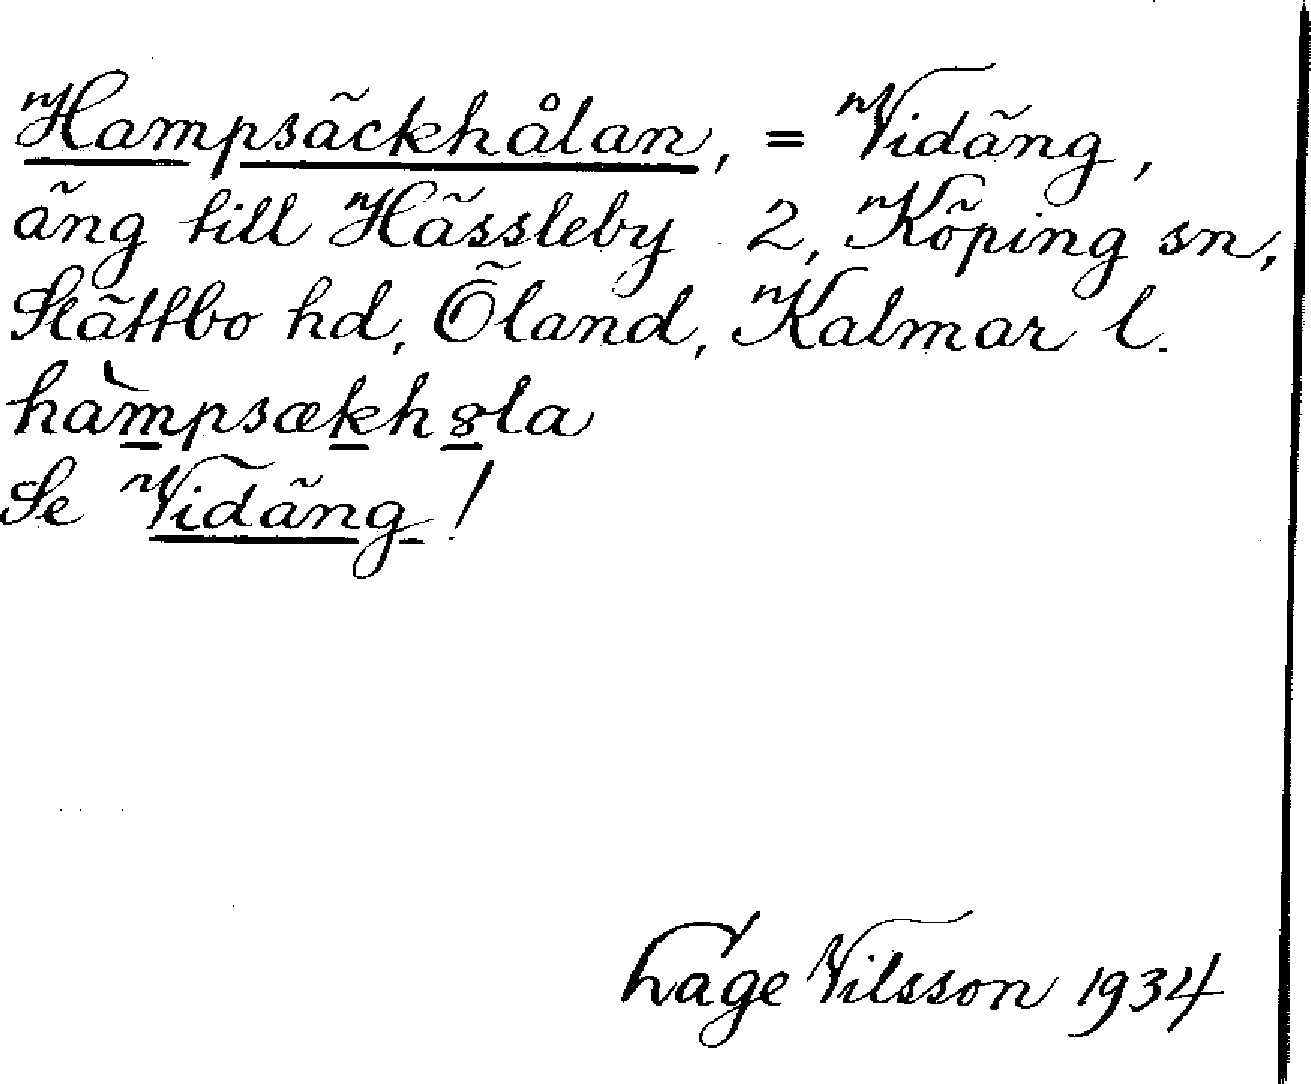 Hampsäckhålan, = Vidäng,
äng till Hässleby 2, Köping sn,
Slättbo hd, Öland, Kalmar l.
hàmpsækhꝏla
Se Vidäng!
Lage Nilsson 1934